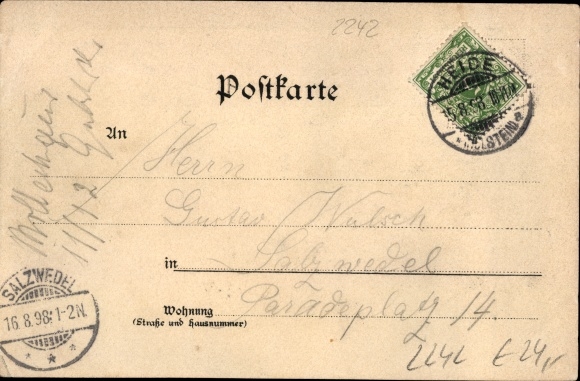 2242
Postkarte
HEIDE
15.8.98
(HOLSTEIN)
An
Herrn
Gustav Wulsch
in Salzwedel
Wohnung Paradeplatz 14.
(Straße und Hausnummer)
SALZWEDEL
16.8.98. 1-2N.
11/12
2242 E 24,-